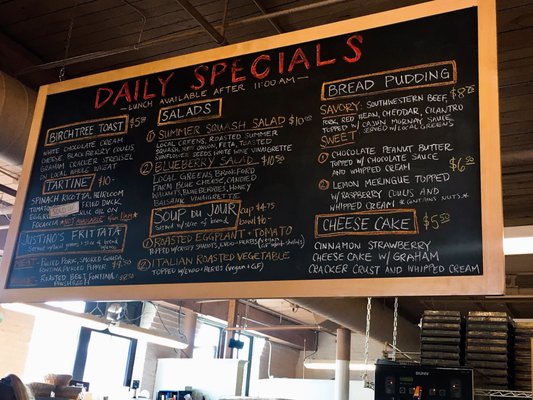 DAILY SPECIALS
LUNCH AVAILABLE AFTER 11:00AM
BIRCHTREE TOAST
WHITE CHOCOLATE CREAM
CHEESE BLACKBERRY COULIS
GRAHAM CRACKER STREUSEL
ON LOCAL WHEAT
TARTINE $10
SPINACH RICOTTA, HEIRLOOM
FOCACCIA
JUSTINO'S FRITTATA
SERVED W/ LOCAL GREENS, SLICE OF BREAD
MEAT: PULLED PORK, SMOKED GOUDA,
FONTINA, PICKLED PEPPER
SALADS
① SUMMER SQUASH SALAD $10.00
LOCAL GREENS, ROASTED SUMMER
SQUASH, RED ONION, FETA, TOASTED
SUNFLOWER SEEDS, WHITE VINAIGRETTE
② BLUEBERRY SALAD $10
LOCAL GREENS, BROOKFORD
FARM BLUE CHEESE, CANDIED
WALNUTS, BLUEBERRIES, HONEY
BALSAMIC VINAIGRETTE
SOUP DU JOUR
CUP $4.75
SERVED W/ SLICE OF BREAD
① ROASTED EGGPLANT + TOMATO
② ITALIAN ROASTED VEGETABLE
TOPPED W/ EVOO + HERBS (VEGAN + GF)
BREAD PUDDING
SAVORY: SOUTHWESTERN BEEF,
PORK, RED BEAN, CHEDDAR, CILANTRO
TOPPED W/ CAJUN MORNAY SAUCE
SERVED W/ LOCAL GREENS
SWEET
① CHOCOLATE PEANUT BUTTER
TOPPED W/ CHOCOLATE SAUCE
AND WHIPPED CREAM
$6.50
② LEMON MERINGUE TOPPED
W/ RASPBERRY COULIS AND
WHIPPED CREAM * CONTAINS NUTS *
CHEESE CAKE $5.50
CINNAMON STRAWBERRY
CHEESE CAKE W/ GRAHAM
CRACKER CRUST AND WHIPPED CREAM
BUNN